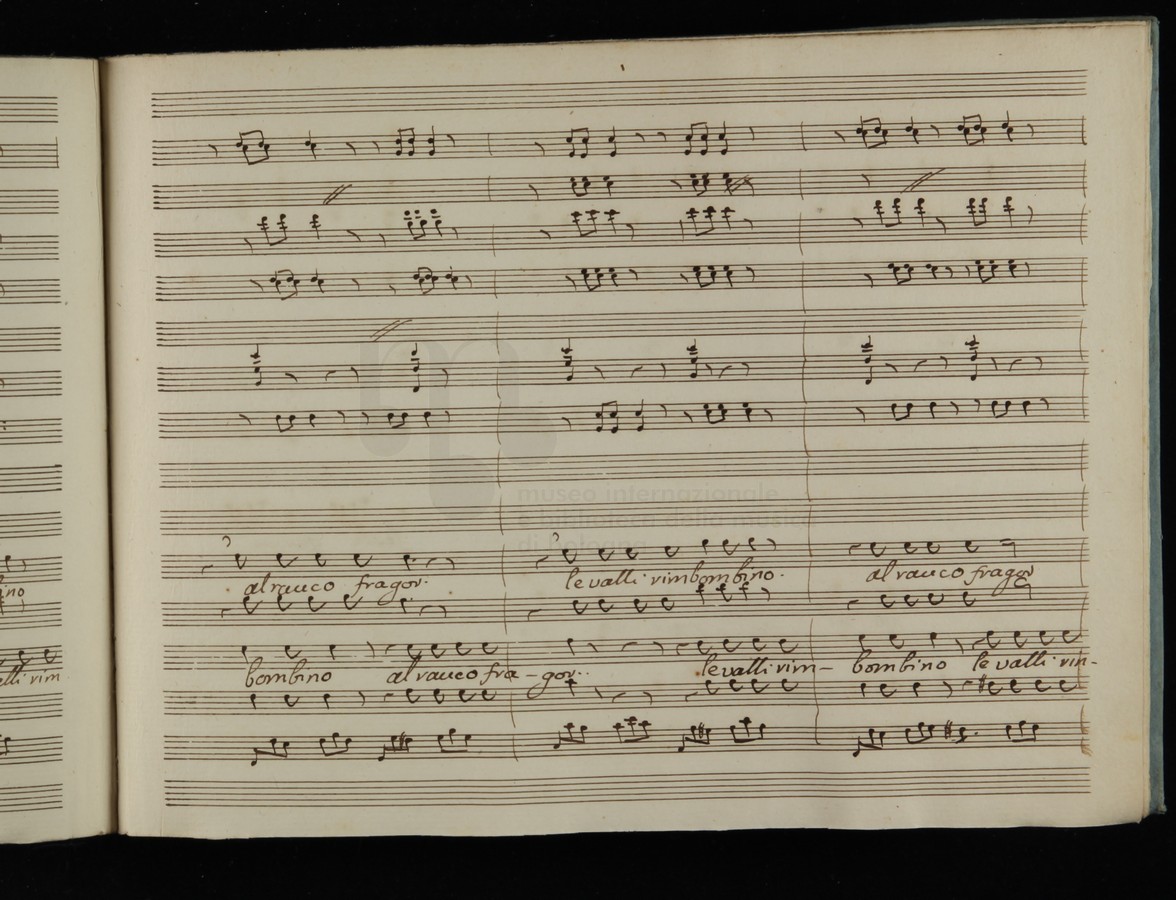 al rauco fragor. le valli rimbombino. al rauco fragor
bombino al rauco fra-gor.. le valli rim- bombino le valli rim-
ino
elli rim
museo internazionale
e biblioteca della musica
di bologna